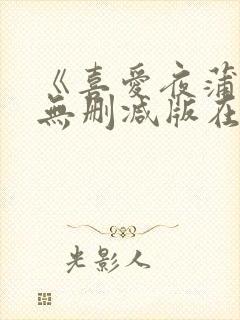 《喜愛夜蒲
無刪減版在
光影人